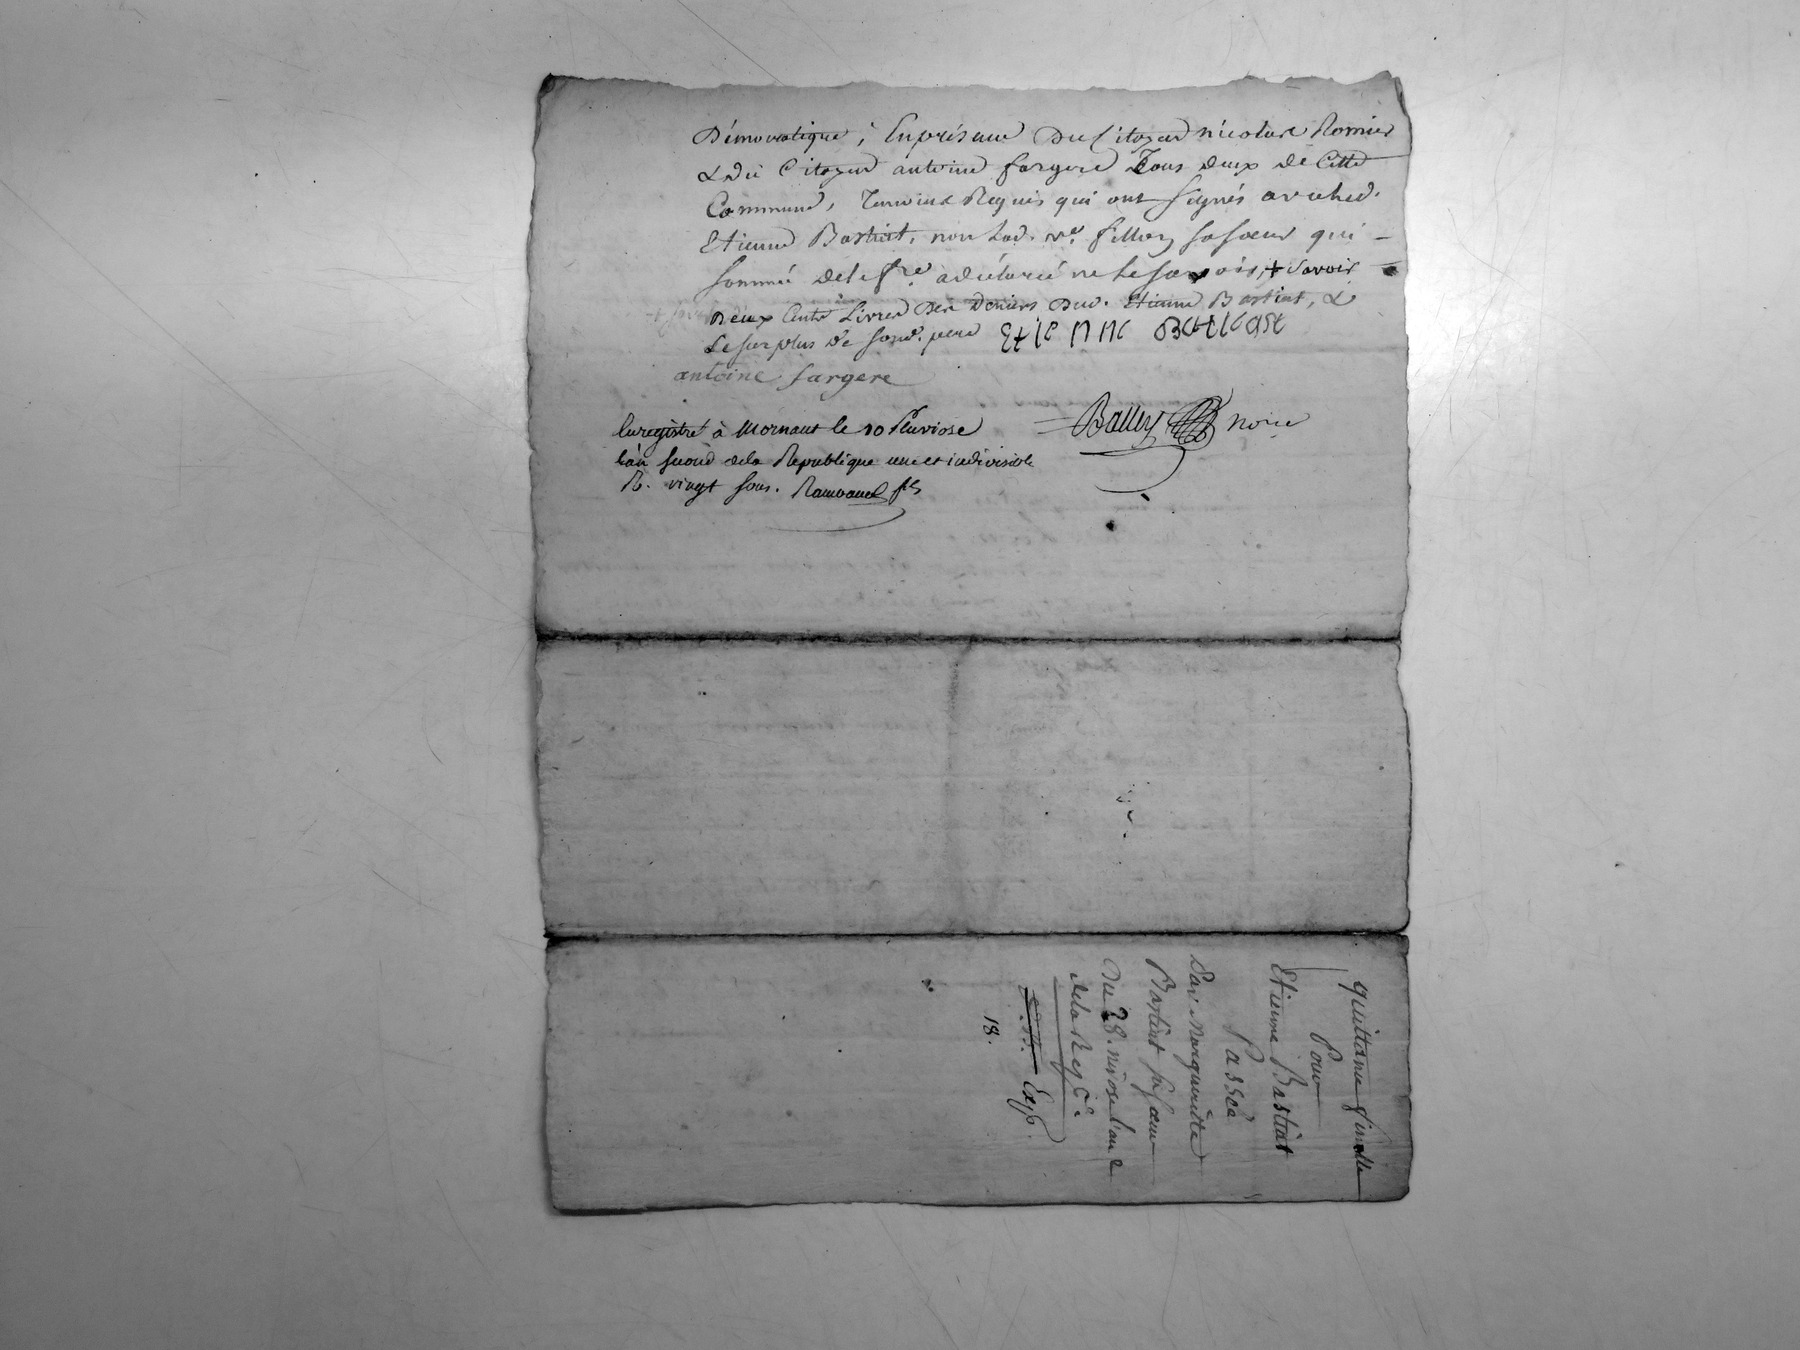 Démocratique, En présence du Citoyen nicolas Romier
& du Citoyen antoine fargere Tous deux de Cette
Commune, Temoins Requis qui ont signés avec led.
Etienne Bastiat, non lad. ve. fillion sa soeur qui
sommée de le fre. a déclaré ne le savoir, + savoir
deux Cents Livres des deniers dud. Etienne Bastiat, &
Le surplus de sond. pere Etienne
antoine fargere
Balley nore
Enregistré à Mornant le 10 Pluviose
l'an second de la Republique une et indivisible
R. vingt sous. fils
quittance finalle
Pour
Etienne Bastiat
Passée
Par Margueritte
Bastiat sa soeur
Du 28. nivose l'an 2
de la Rep. fse.
Exp.
18.